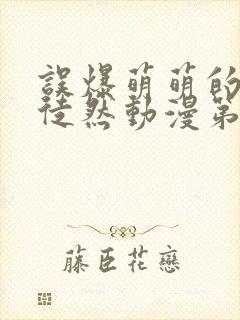 誤爆萌萌的
徒然動漫第
藤臣花戀